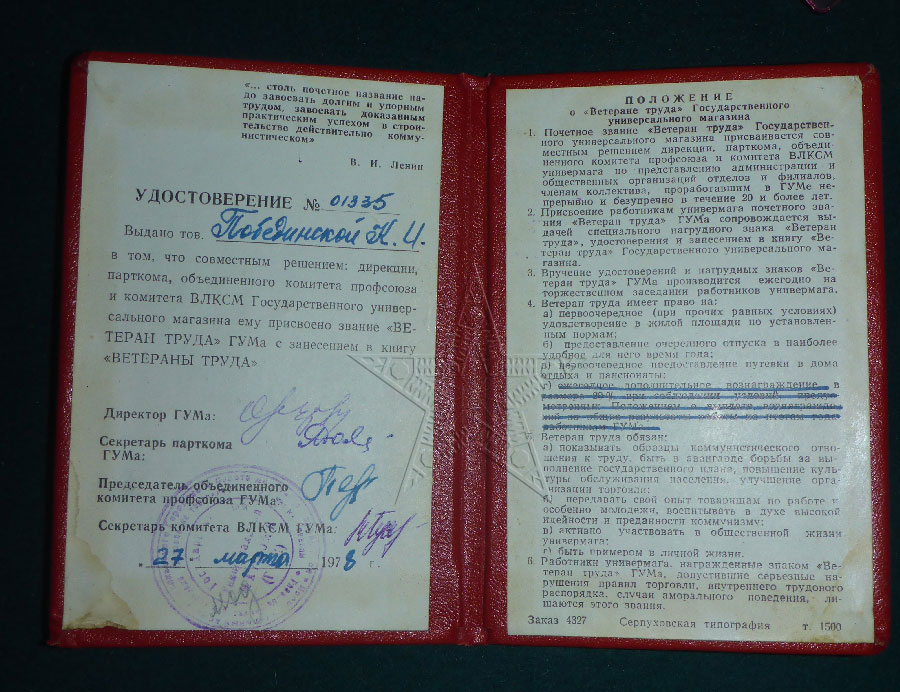 «... столь почетное название на-
до завоевать долгим и упорным
трудом, завоевать доказанным
практическим успехом в строи-
тельстве действительно комму-
нистическом»
В. И. Ленин
УДОСТОВЕРЕНИЕ № 01335
Выдано тов. Побединской К. И.
в том, что совместным решением: дирекции,
парткома, объединенного комитета профсоюза
и комитета ВЛКСМ Государственного универ-
сального магазина ему присвоено звание «ВЕ-
ТЕРАН ТРУДА» ГУМа с занесением в книгу
«ВЕТЕРАНЫ ТРУДА»
Директор ГУМа:
Секретарь парткома
ГУМа:
Председатель объединенного
комитета профсоюза ГУМа:
Секретарь комитета ВЛКСМ ГУМа:
„ 27 „ марта 1978 г.
ПОЛОЖЕНИЕ
о «Ветеране труда» Государственного
универсального магазина
1. Почетное звание «Ветеран труда» Государствен-
ного универсального магазина присваивается сов-
местным решением дирекции, парткома, объеди-
ненного комитета профсоюза и комитета ВЛКСМ
универмага по представлению администрации и
общественных организаций отделов и филиалов,
членам коллектива, проработавшим в ГУМе не-
прерывно и безупречно в течение 20 и более лет.
2. Присвоение работникам универмага почетного зва-
ния «Ветеран труда» ГУМа сопровождается вы-
дачей специального нагрудного знака «Ветеран
труда», удостоверения и занесением в книгу «Ве-
теран труда» Государственного универсального ма-
газина.
3. Вручение удостоверений и нагрудных знаков «Ве-
теран труда» ГУМа производится ежегодно на
торжественном заседании работников универмага.
4. Ветеран труда имеет право на:
а) первоочередное (при прочих равных условиях)
удовлетворение в жилой площади по установлен-
ным нормам;
б) предоставление очередного отпуска в наиболее
удобное для него время года;
в) первоочередное предоставление путевки в дома
отдыха и пансионаты;
г) ежегодное дополнительное вознаграждение в
работникам ГУМа.
5. Ветеран труда обязан:
а) показывать образцы коммунистического отно-
шения к труду, быть в авангарде борьбы за вы-
полнение государственного плана, повышение куль-
туры обслуживания населения, улучшение орга-
низации торговли;
б) передавать свой опыт товарищам по работе и
особенно молодежи, воспитывать в духе высокой
идейности и преданности коммунизму;
в) активно участвовать в общественной жизни
универмага;
г) быть примером в личной жизни.
6. Работники универмага, награжденные знаком «Ве-
теран труда» ГУМа, допустившие серьезные на-
рушения правил торговли, внутреннего трудового
распорядка, случаи аморального поведения, ли-
шаются этого звания.
Заказ 4327 Серпуховская типография т. 1500